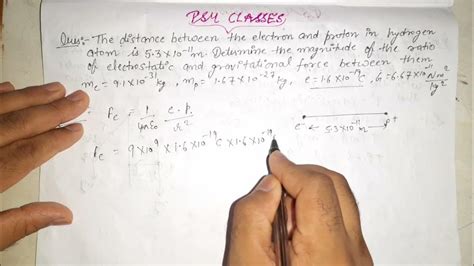 PSM CLASSES
Ques:- The distance between the electron and proton in hydrogen
atom is 5.3×10⁻¹¹m. Determine the magnitude of the ratio
of electrostatic and gravitational force between them
mₑ = 9.1×10⁻³¹ kg, mₚ = 1.67×10⁻²⁷ kg, e = 1.6×10⁻¹⁹ C, G = 6.67×10⁻¹¹ Nm²/kg²
Fₑ = 1/4πε₀ e·P/r²
e⁻ ← 5.3×10⁻¹¹ m P⁺
Fₑ = 9×10⁹ × 1.6×10⁻¹⁹C × 1.6×10⁻¹⁹